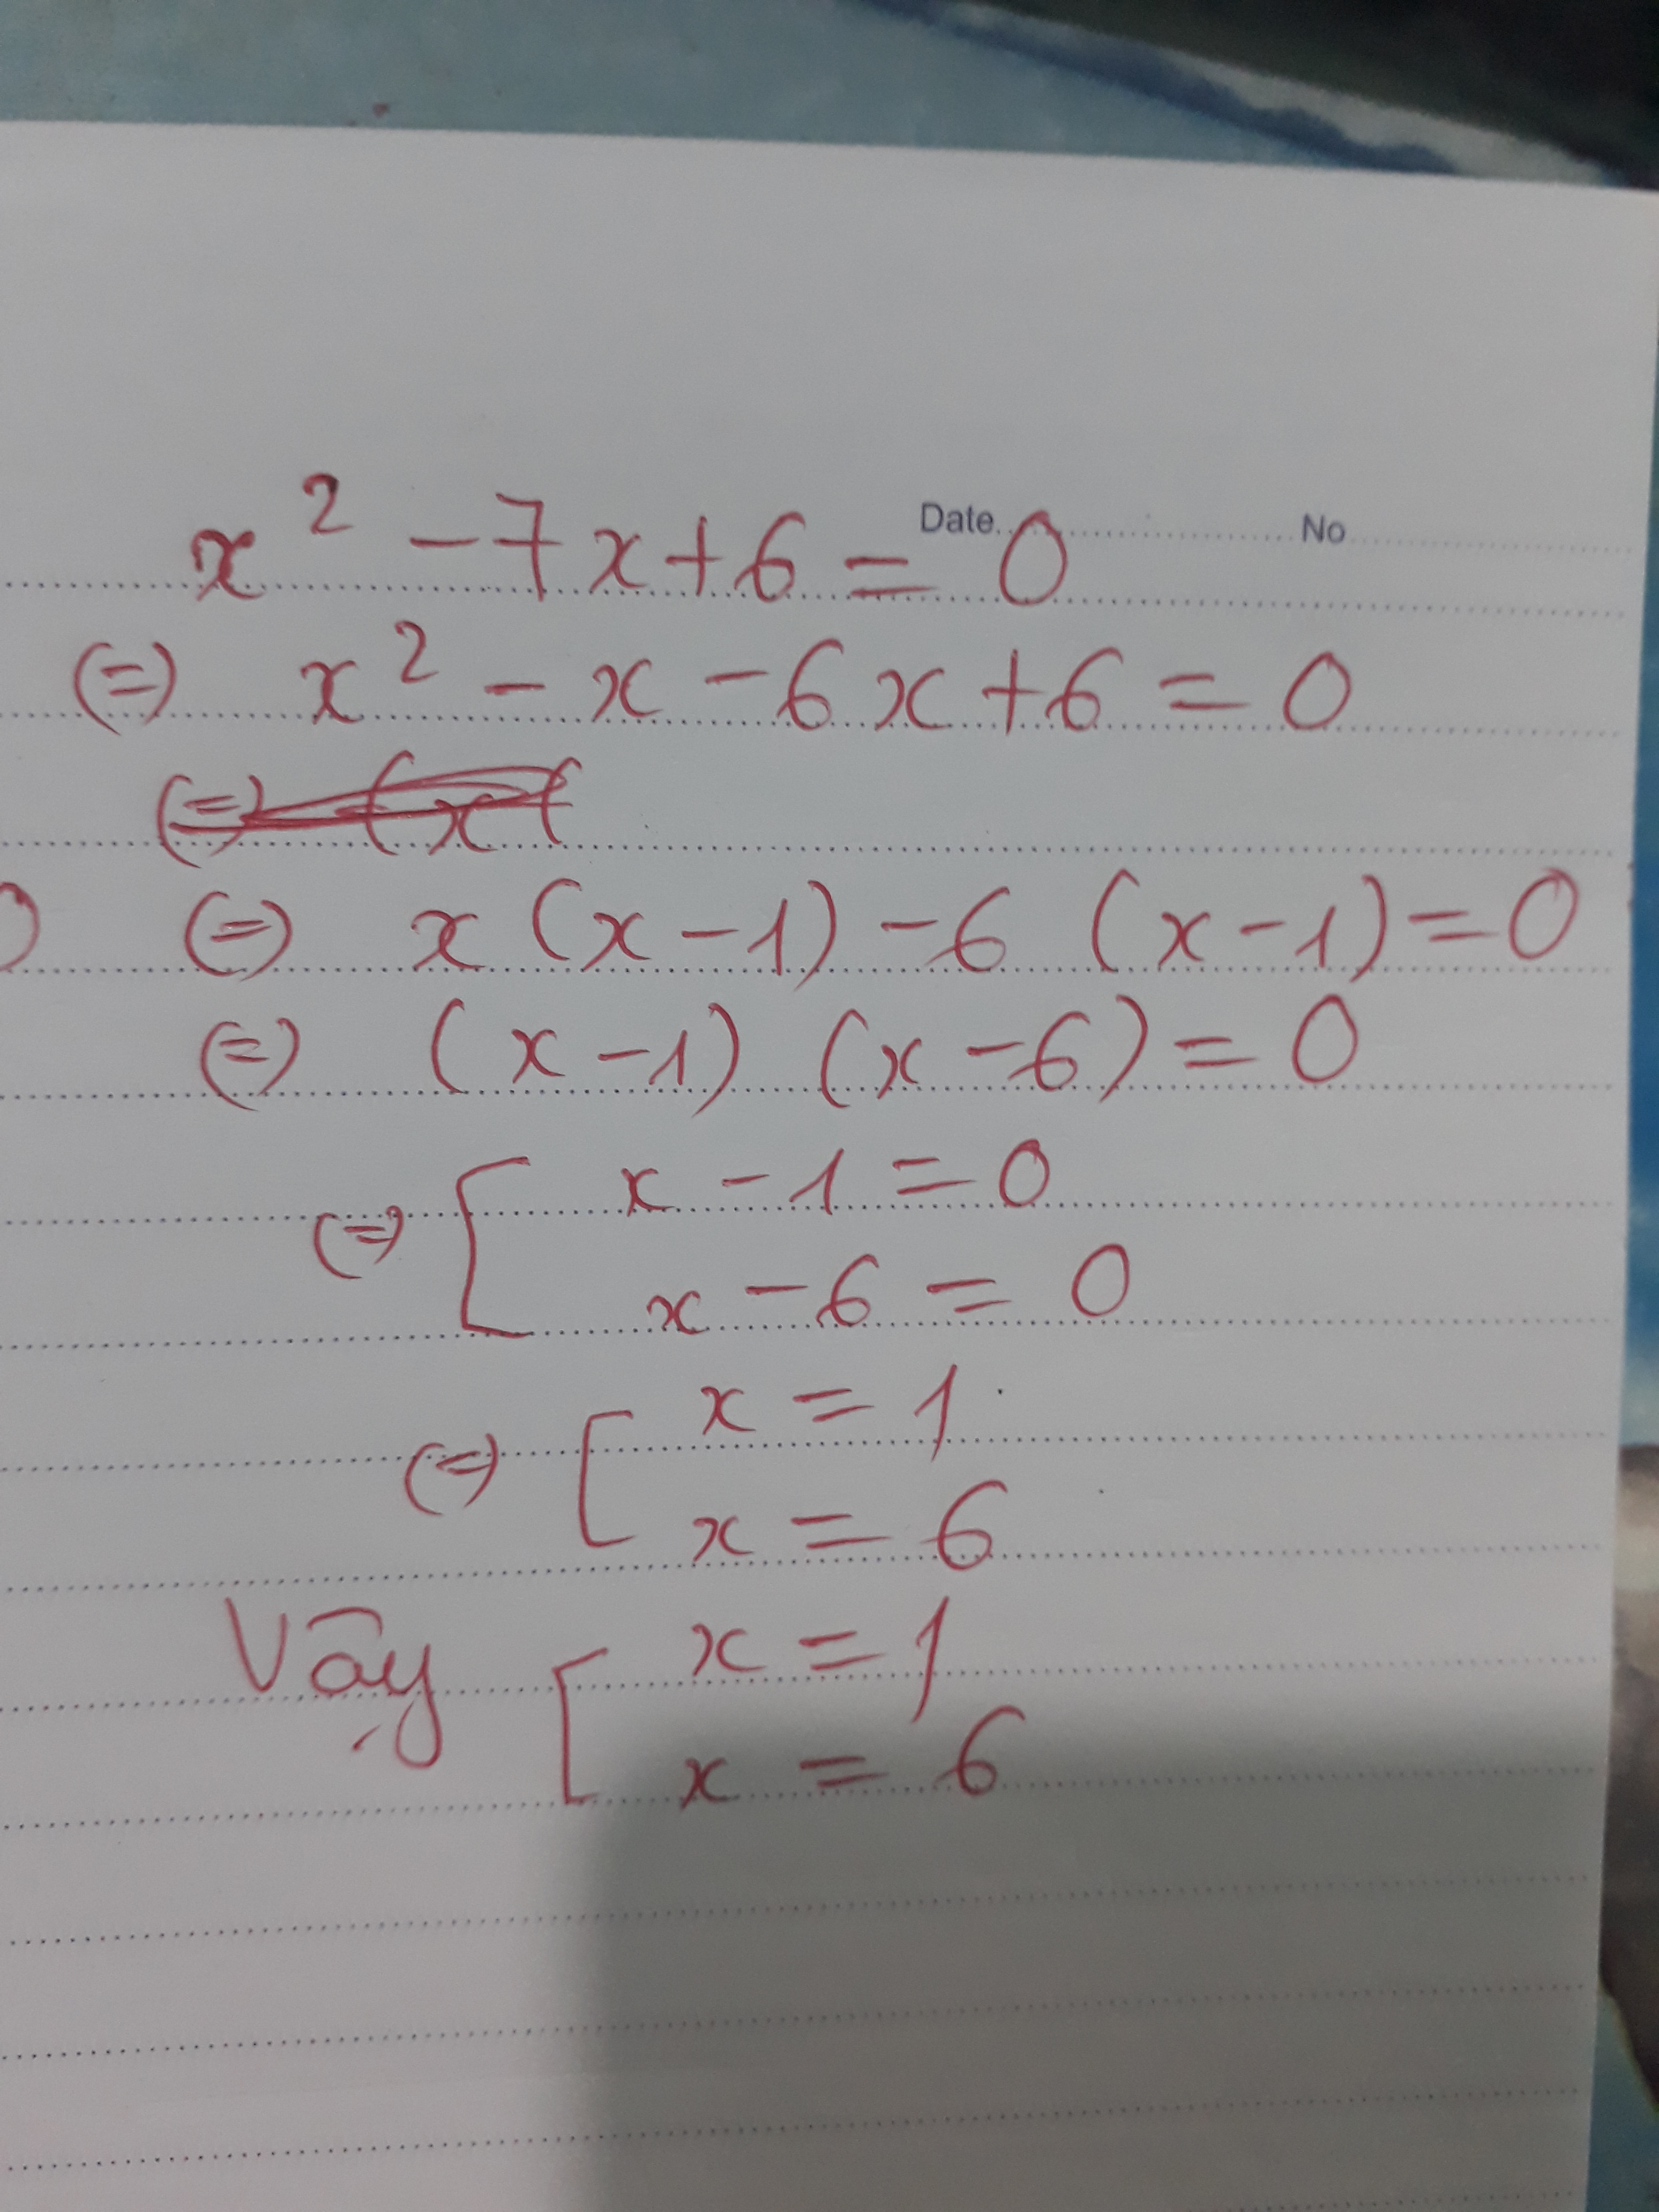 Date No
x² - 7x + 6 = 0
(=) x² - x - 6x + 6 = 0
(=) (x(
(=) x (x - 1) - 6 (x - 1) = 0
(=) (x - 1) (x - 6) = 0
(=) [ x - 1 = 0
x - 6 = 0
(=) [ x = 1
x = 6
Vậy [ x = 1
x = 6